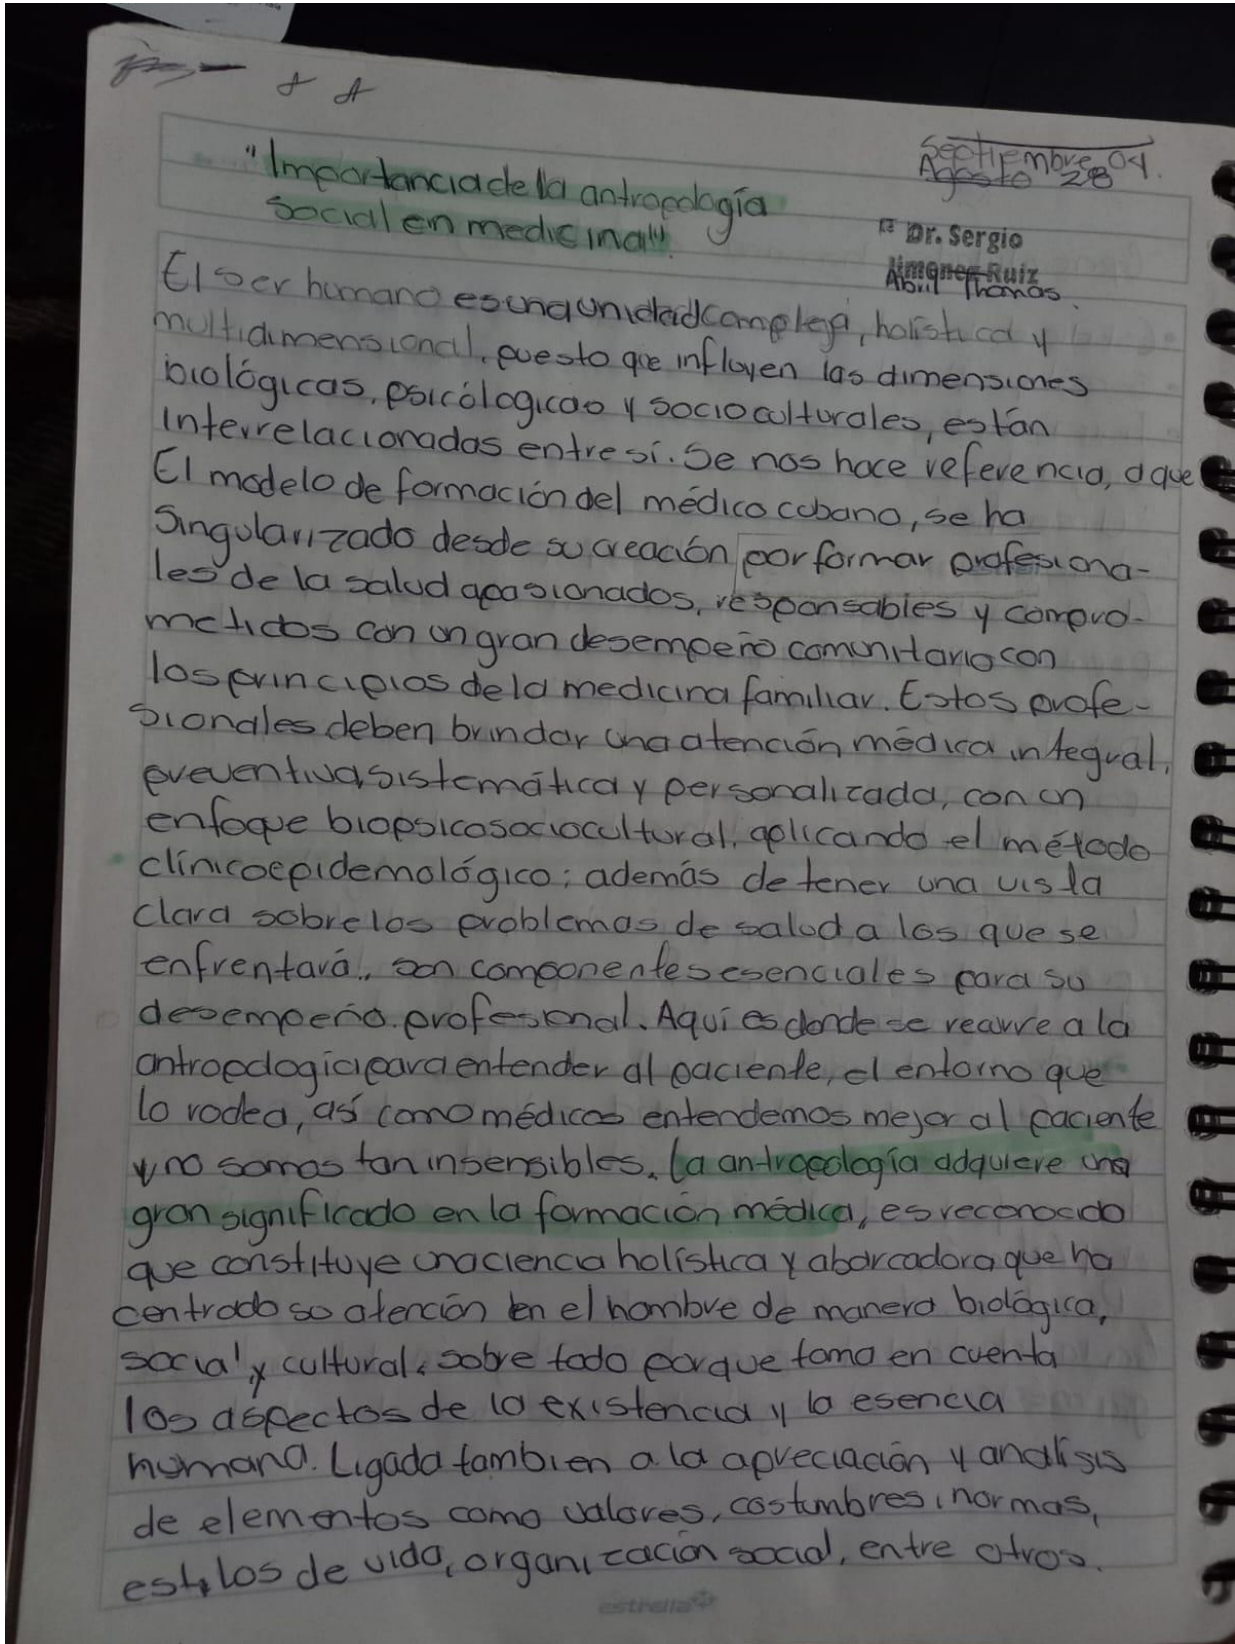 Septiembre 04.
Agosto 28
"Importancia de la antropología
social en medicina".
Dr. Sergio
Jimenez Ruiz
Abril Thomas.
El ser humano es una unidad compleja, holística y
multidimensional, puesto que influyen las dimensiones
biológicas, psicólogicas y socioculturales, están
interrelacionadas entre sí. Se nos hace referencia, a que
El modelo de formación del médico cubano, se ha
singularizado desde su creación por formar profesiona-
les de la salud apasionados, responsables y compro-
metidos con un gran desempeño comunitario con
los principios de la medicina familiar. Estos profe-
sionales deben brindar una atención médica integral,
preventiva, sistemática y personalizada, con un
enfoque biopsicosociocultural, aplicando el método
clínicoepidemológico; además de tener una vista
clara sobre los problemas de salud a los que se
enfrentará, son componentes esenciales para su
desempeño profesional. Aquí es donde se recurre a la
antropología para entender al paciente, el entorno que
lo rodea, así como médicos entendemos mejor al paciente
y no somos tan insensibles. La antropología adquiere una
gran significado en la formación médica, es reconocido
que constituye una ciencia holística y abarcadora que ha
centrado su atención en el hombre de manera biológica,
social y cultural, sobre todo porque toma en cuenta
los aspectos de la existencia y la esencia
humana. Ligada tambien a la apreciación y analísis
de elementos como valores, costumbres, normas,
estilos de vida, organización social, entre otros.
estrella